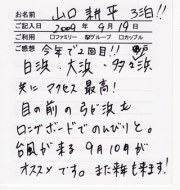 お名前 山口 耕平 3泊!!
ご記入日 2009年 9月19日
ご利用 ロファミリー ログループ ロカップル
ご感想 今年で2回目!!
白浜・大浜・多々戸浜
共に アクセス 最高!
目の前の 弓ヶ浜も
ロングボードで のんびりと。
台風が来る 9月10月が
オススメです。また来年も来ます!